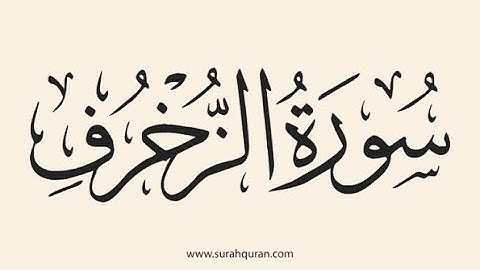 سُورَةُ الزُّخْرُفِ
www.surahquran.com